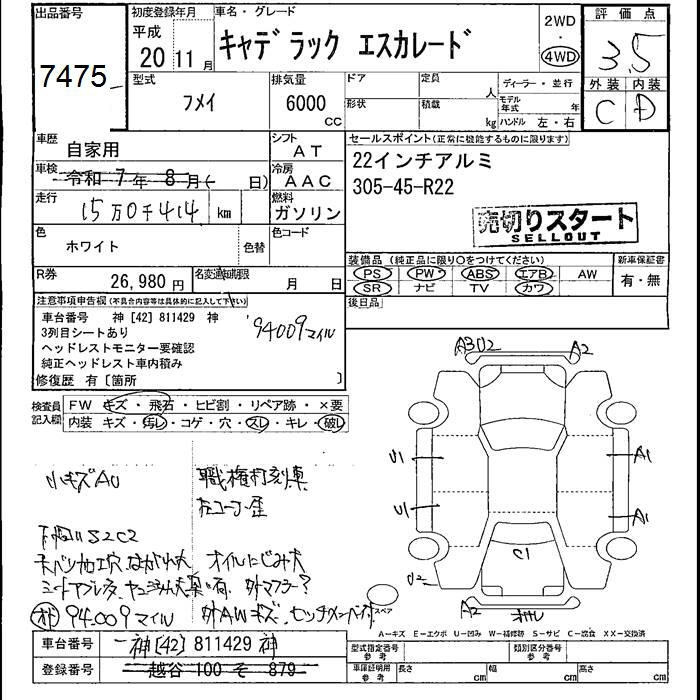 出品番号
7475
初度登録年月
平成
20 11月
車名・グレード
キャデラック エスカレード
2WD
・
4WD
評価点
3.5
外装 内装
C D
型式
フメイ
排気量
6000
cc
ドア
定員
人
形状
積載
kg
ディーラー・並行
モデル年式 年
ハンドル 左・右
車歴
自家用
シフト
AT
セールスポイント(正常に機能するものに限ります)
22インチアルミ
305-45-R22
売切りスタート
SELLOUT
車検
令和 7年 8月( 日)
冷房
AAC
走行
15万0千414 km
燃料
ガソリン
色
ホワイト
色替
色コード
装備品(純正品に限り○をつけてください)
PS ・ PW ・ ABS ・ エアB ・ AW
SR ・ ナビ ・ TV ・ カワ
新車保証書
有・無
R券
26,980円
名変通知期限
月 日
後日品
注意事項申告欄(不具合内容等は具体的に記入して下い)
車台番号 神[42]811429 神
94009マイル
3列目シートあり
ヘッドレストモニター要確認
純正ヘッドレスト車内積み
修復歴 有[箇所 ]
検査員
記入欄
FW キズ・飛石・ヒビ割・リペア跡・×要
内装 キズ・汚レ・コゲ・穴・スレ・キレ・破レ
A3U2
A2
U1
A1
U1
A1
C1
U2
A2
スペア
小キズAU
職権打刻車
右コーナー歪
下廻りUS2C2
オイルにじみ大
外マフラー?
94.009マイル
外AWキズ
A-キズ E-エクボ U-凹み W-補修跡 S-サビ C-腐食 XX-交換済
車台番号
神[42]811429 神
登録番号
越谷 100 そ 879
型式指定番号
参考
類別区分番号
参考
車庫証明用
参考
長さ cm
幅 cm
高さ cm